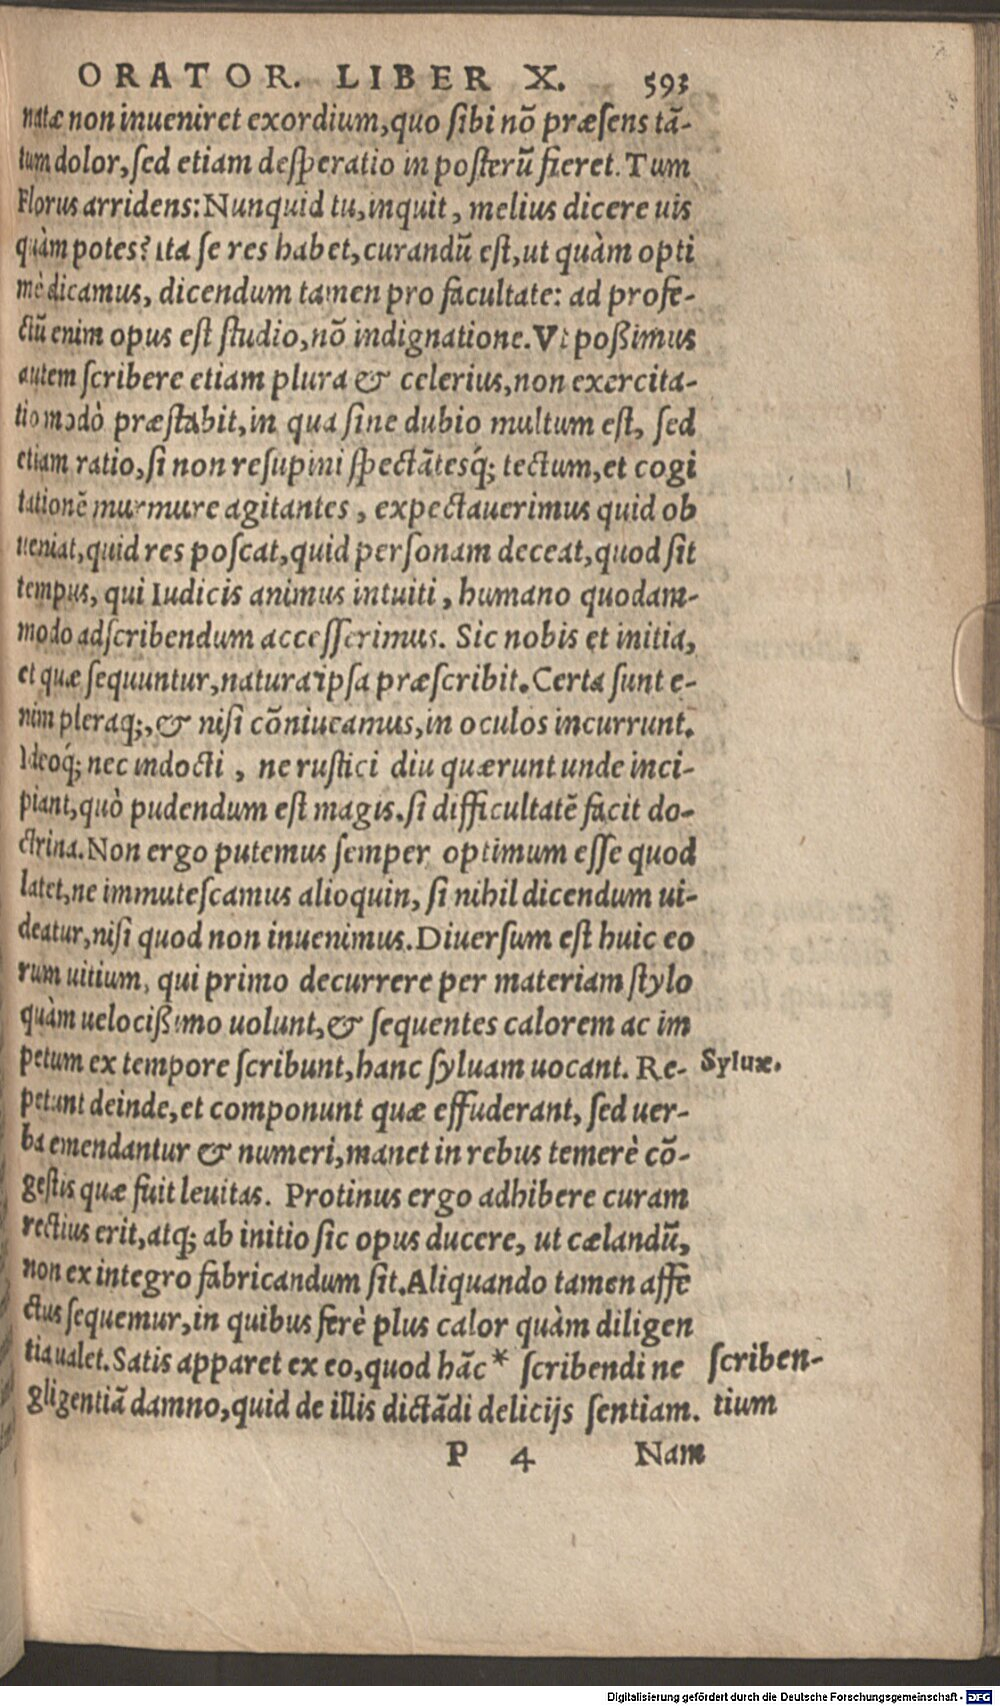 ORATOR. LIBER X. 593
natæ non inueniret exordium, quo sibi nō præsens tā-
tum dolor, sed etiam desperatio in posterū fieret. Tum
Florus arridens: Nunquid tu, inquit, melius dicere uis
quàm potes? ita se res habet, curandū est, ut quàm opti
mè dicamus, dicendum tamen pro facultate: ad profe-
ctū enim opus est studio, nō indignatione. Vt poßimus
autem scribere etiam plura & celerius, non exercita-
tio modò præstabit, in qua sine dubio multum est, sed
etiam ratio, si non resupini spectātesq́; tectum, et cogi
tationē murmure agitantes, expectauerimus quid ob
ueniat, quid res poscat, quid personam deceat, quod sit
tempus, qui Iudicis animus intuiti, humano quodam-
modo adscribendum accesserimus. Sic nobis et initia,
et quæ sequuntur, natura ipsa præscribit. Certa sunt e-
nim pleraq;, & nisi cōniueamus, in oculos incurrunt.
Ideoq́; nec indocti, ne rustici diu quærunt unde inci-
piant, quò pudendum est magis. si difficultatē facit do-
ctrina. Non ergo putemus semper optimum esse quod
latet, ne immutescamus alioquin, si nihil dicendum ui-
deatur, nisi quod non inuenimus. Diuersum est huic eo
rum uitium, qui primo decurrere per materiam stylo
quàm uelocißimo uolunt, & sequentes calorem ac im
petum ex tempore scribunt, hanc syluam uocant. Re- Syluæ.
petunt deinde, et componunt quæ effuderant, sed uer-
ba emendantur & numeri, manet in rebus temerè cō-
gestis quæ fuit leuitas. Protinus ergo adhibere curam
rectius erit, atq; ab initio sic opus ducere, ut cælandū,
non ex integro fabricandum sit. Aliquando tamen affe
ctus sequemur, in quibus ferè plus calor quàm diligen
tia ualet. Satis apparet ex eo, quod hāc* scribendi ne scriben-
gligentiā damno, quid de illis dictādi delicijs sentiam. tium
P 4 Nam
Digitalisierung gefördert durch die Deutsche Forschungsgemeinschaft - DFG